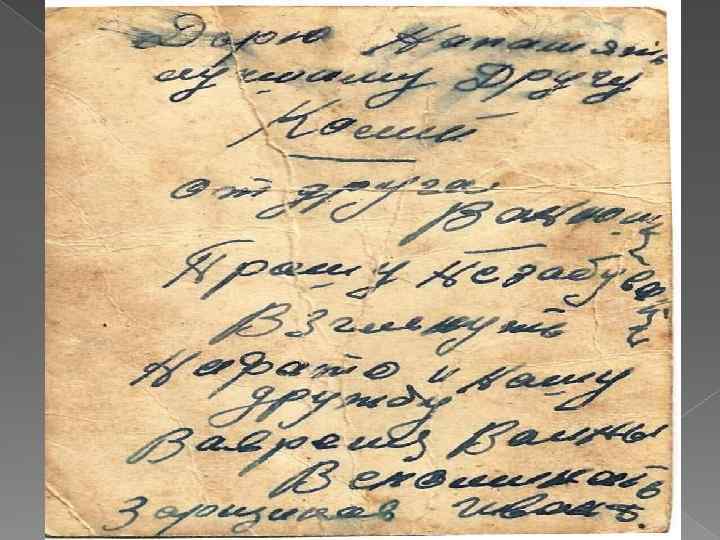 Дорю Напамять
лучшому Другу
Колий
от друга
Ванюши
Прашу незабувать
Взглянуть
Нафото и нашу
дружбу
Вавремя Войны
Вспоминать
Зарицков Иван